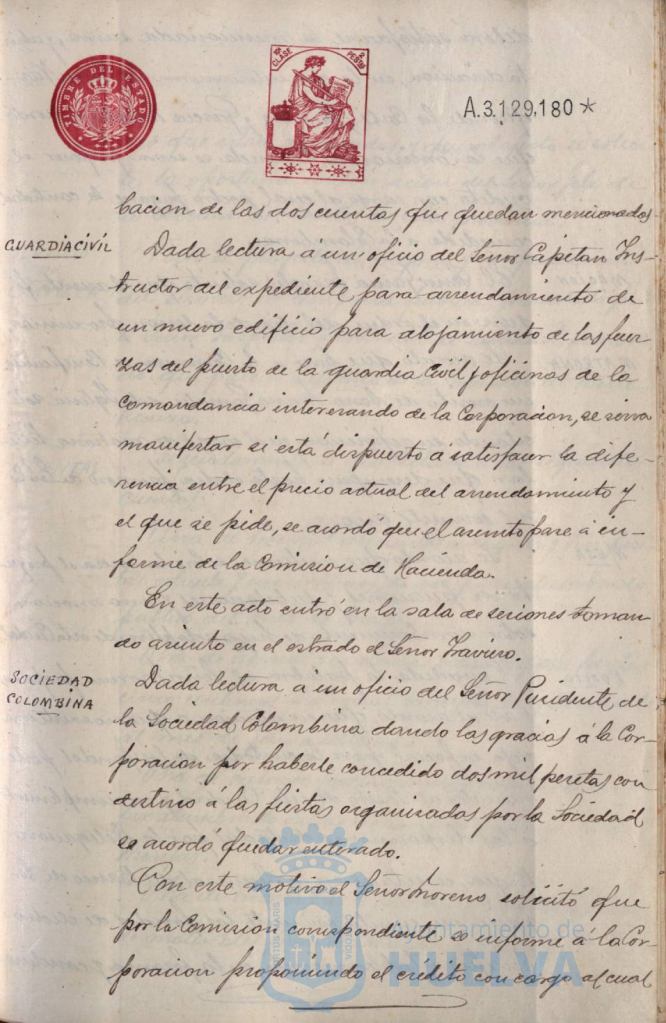 TIMBRE DEL ESTADO
10ª CLASE
2 PESETAS
A.3.129,180 *
bacion de las dos cuentas que quedan mencionadas.
GUARDIA CIVÍL
Dada lectura á un oficio del Señor Capitan Ins-
tructor del expediente para arrendamiento de
un nuevo edificio para alojamiento de las fuer
zas del puerto de la guardia Civil y oficinas de la
Comandancia interesando de la Corporacion, se sirva
manifestar si está dispuesto á satisfacer la dife-
rencia entre el precio actual del arrendamiento y
el que se pide, se acordó que el asunto pase á in-
forme de la Comision de Hacienda.
En este acto entró en la sala de sesiones toman
do asiento en el estrado el Señor
SOCIEDAD
COLOMBINA
Dada lectura á un oficio del Señor Presidente de
la Sociedad Colombina dando las gracias á la Cor-
poracion por haberle concedido dos mil pesetas con
destino á las fiestas organizadas por la Sociedad
se acordó quedar enterado.
Con este motivo el Señor Moreno solicitó que
por la Comision correspondiente se informe á la Cor-
poracion proponiendo el crédito con cargo al cual
Ayuntamiento de
HUELVA